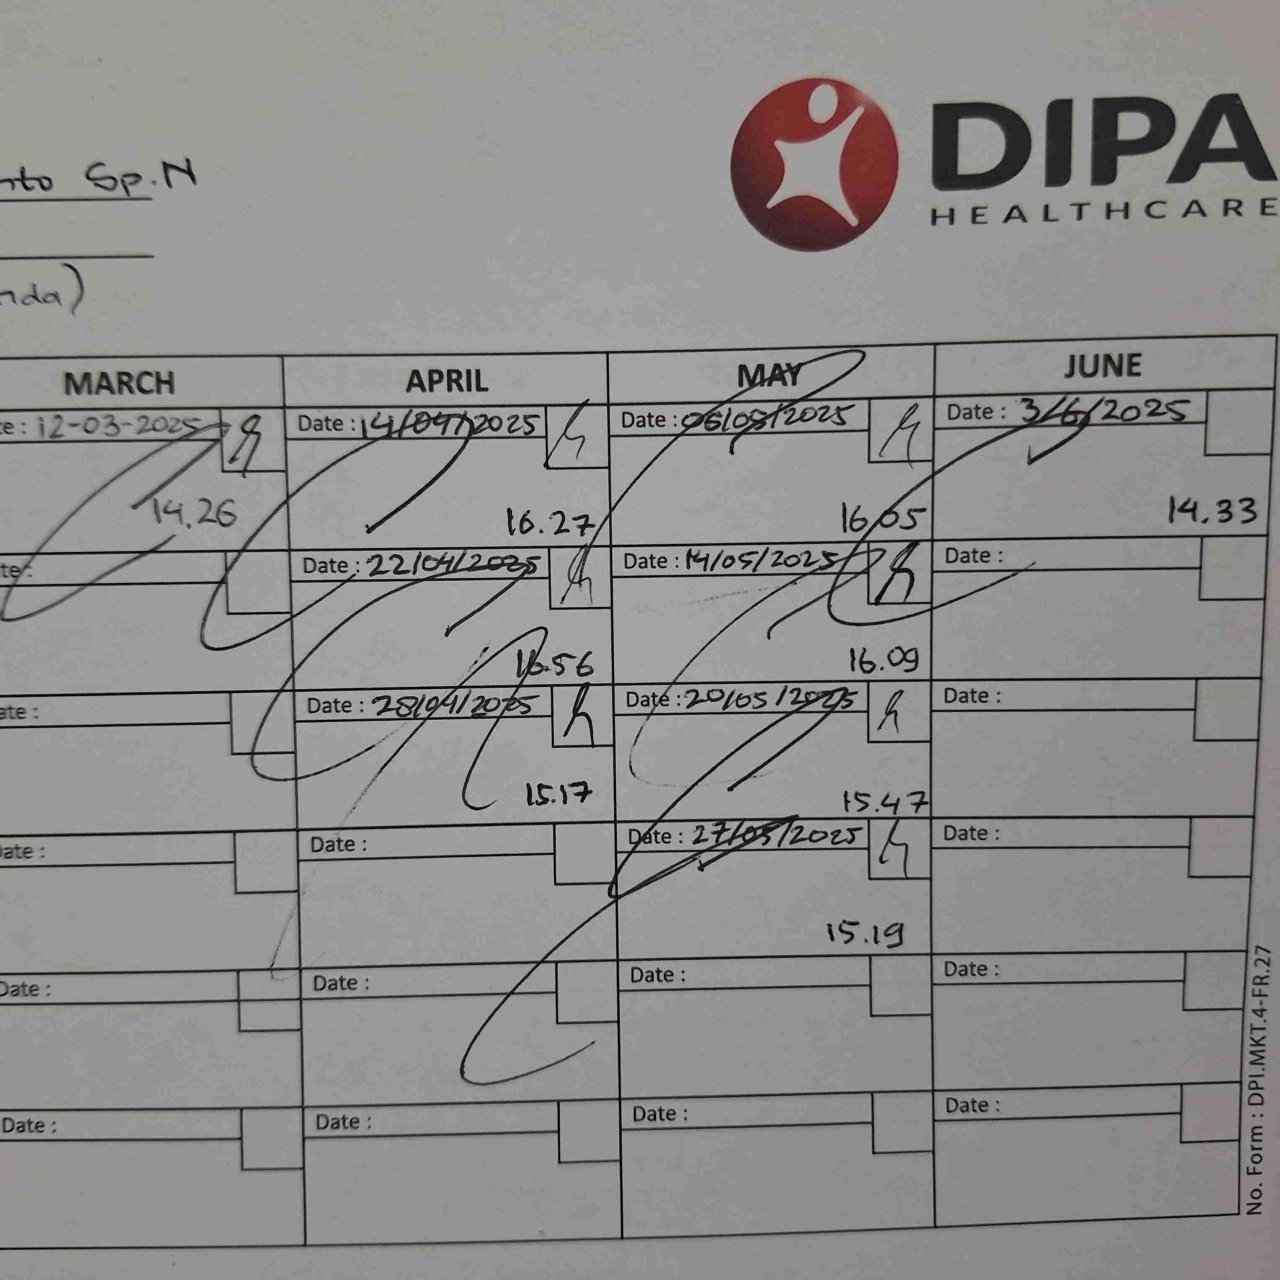 DIPA
HEALTHCARE
nto Sp.N
nda)
MARCH APRIL MAY JUNE
te : 12-03-2025 Date : 14/04/2025 Date : 06/05/2025 Date : 3/6/2025
14.26 16.27 16.05 14.33
te : Date : 22/04/2025 Date : 14/05/2025 Date :
16.56 16.09
ate : Date : 28/04/2025 Date : 20/05/2025 Date :
15.17 15.47
Date : Date : Date : 27/05/2025 Date :
15.19
Date : Date : Date : Date :
Date : Date : Date : Date :
No. Form : DPI.MKT.4-FR.27